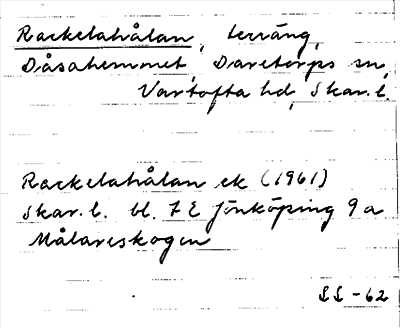 Rackelahålan, terräng,
Dåsahemmet, Daretorps sn,
Vartofta hd, Skar. l.
Rackelahålan ek (1961)
Skar. l. bl. 7 E Jönköping 9 a
Målareskogen
SS -62